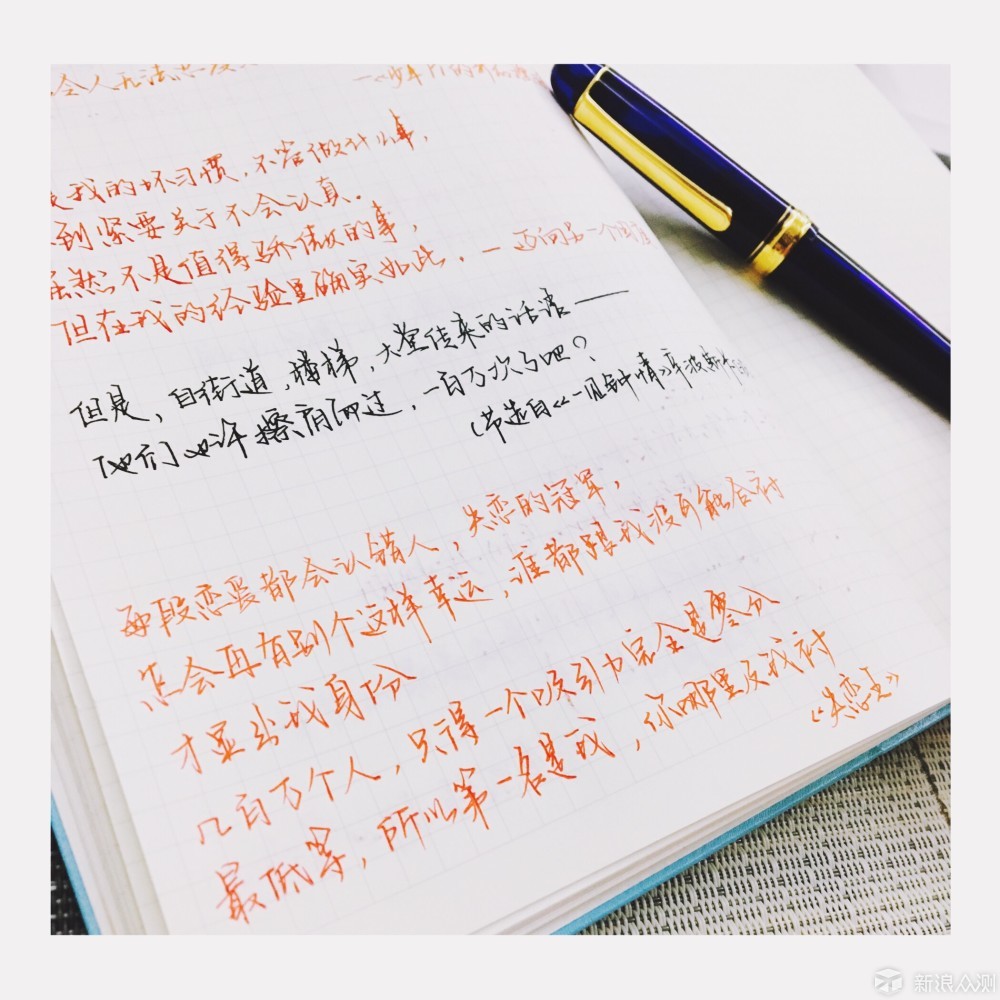 人无法 —《少年Pi的奇幻
我的坏习惯，不管做什么事，
到紧要关于不会认真。
虽然不是值得骄傲的事，
但在我的经验里确实如此，—迈向另一个
但是，自街道，楼梯，大堂传来的话语——
他们也许擦肩而过，一百万次了吧？
（节选自《一见钟情》辛波斯卡
每段恋爱都会认错人，失恋的冠军，
怎会再有别个这样幸运，谁都跟我没可能合衬
才显出我身份
几百万个人，只得一个吸引力完全是零分
最低等，所以第一名是我，你哪里及我衬
《失恋王》
新浪众测